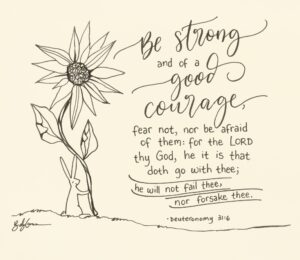 Be strong
and of a
good
courage,
fear not, nor be afraid
of them: for the LORD
thy God, he it is that
doth go with thee;
he will not fail thee,
nor forsake thee.
-Deuteronomy 31:6